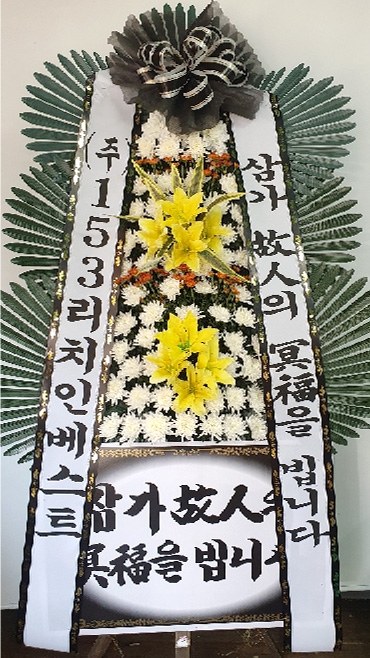 (주)153리치인베스트
삼가 故人의 冥福을 빕니다
삼가 故人의
冥福을 빕니다